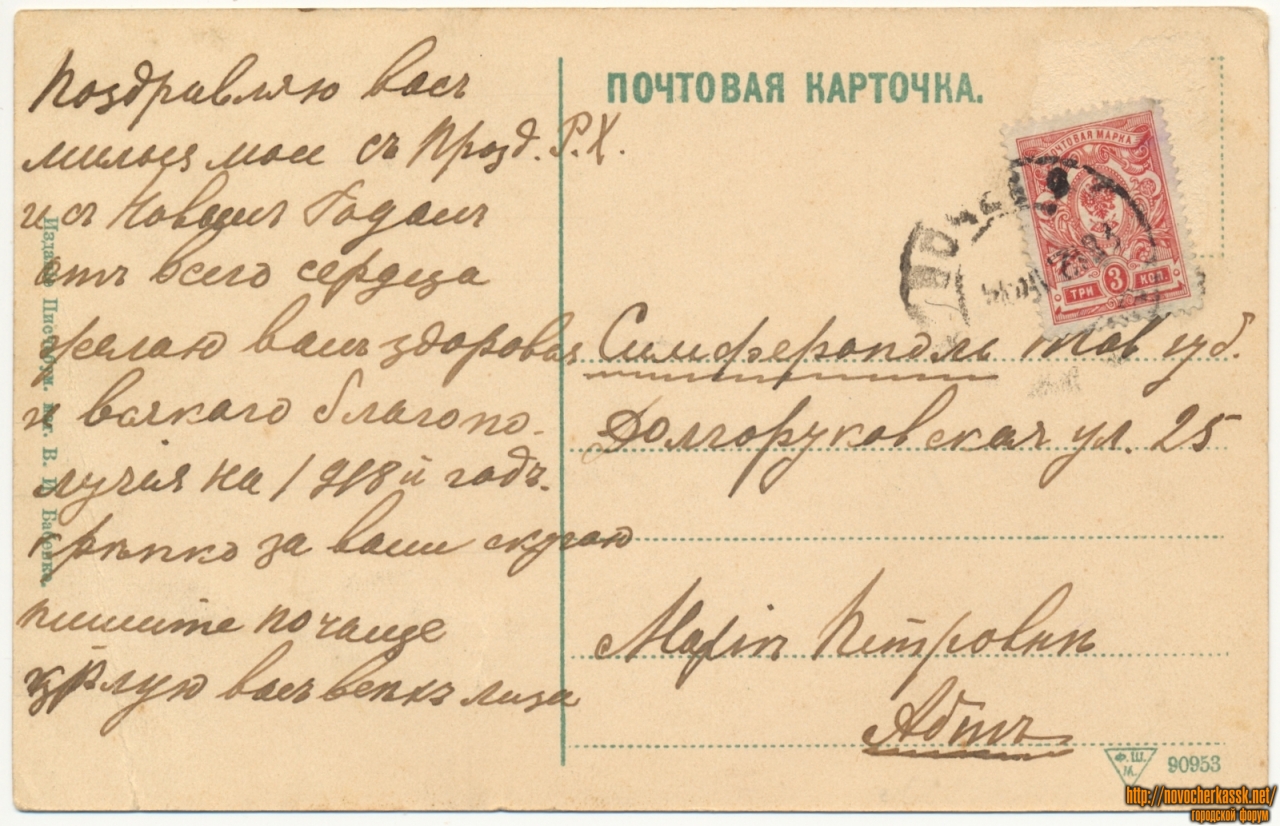 Поздравляю васъ
милыя мои съ Празд. Р.Х.
и съ Новымъ Годомъ
отъ всего сердца
желаю вамъ здоровья
и всякаго благопо-
лучия на 1918й годъ.
крѣпко за вами скучаю
пишите почаще
цѣлую васъ всѣхъ Лиза
Издание Писчебум. маг. В. И. Бабенко.
ПОЧТОВАЯ КАРТОЧКА.
ПОЧТОВАЯ МАРКА
ТРИ 3 КОП.
Симферополь Тав губ.
Долгоруковская ул. 25
Маріи Петровнѣ
Абтъ
Ф.Ш.
М.
90953
http://novocherkassk.net/
городской форум